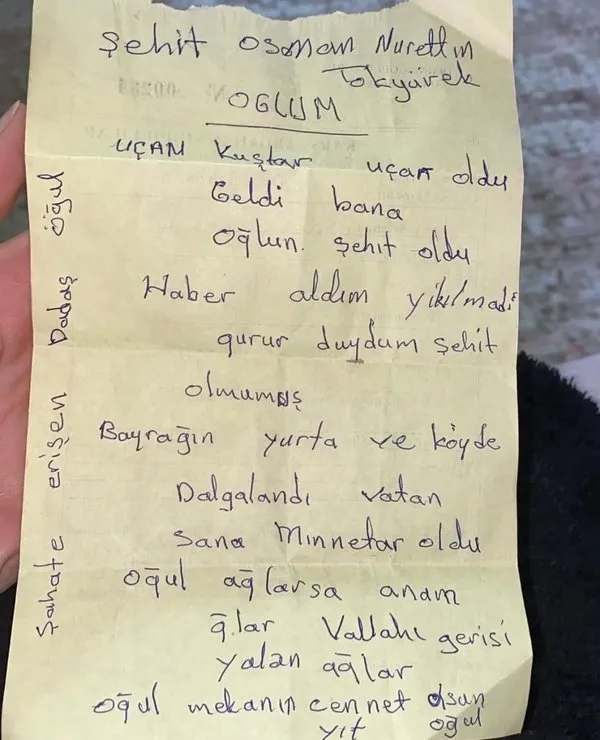 Şehit Osman Nurettin
Tokyürek
OĞLUM
UÇAN Kuşlar uçar oldu
Geldi bana
oğlun. şehit oldu
Haber aldım yıkılmadı
gurur duydum şehit
olmumuş
Bayrağın yurta ve köyde
Dalgalandı vatan
sana Mınnetar oldu
oğul ağlarsa anam
ğlar Vallahı gerisi
yalan ağlar
oğul mekanın cennet olsun
yıt oğul
Şahate erişen Dadaş oğul